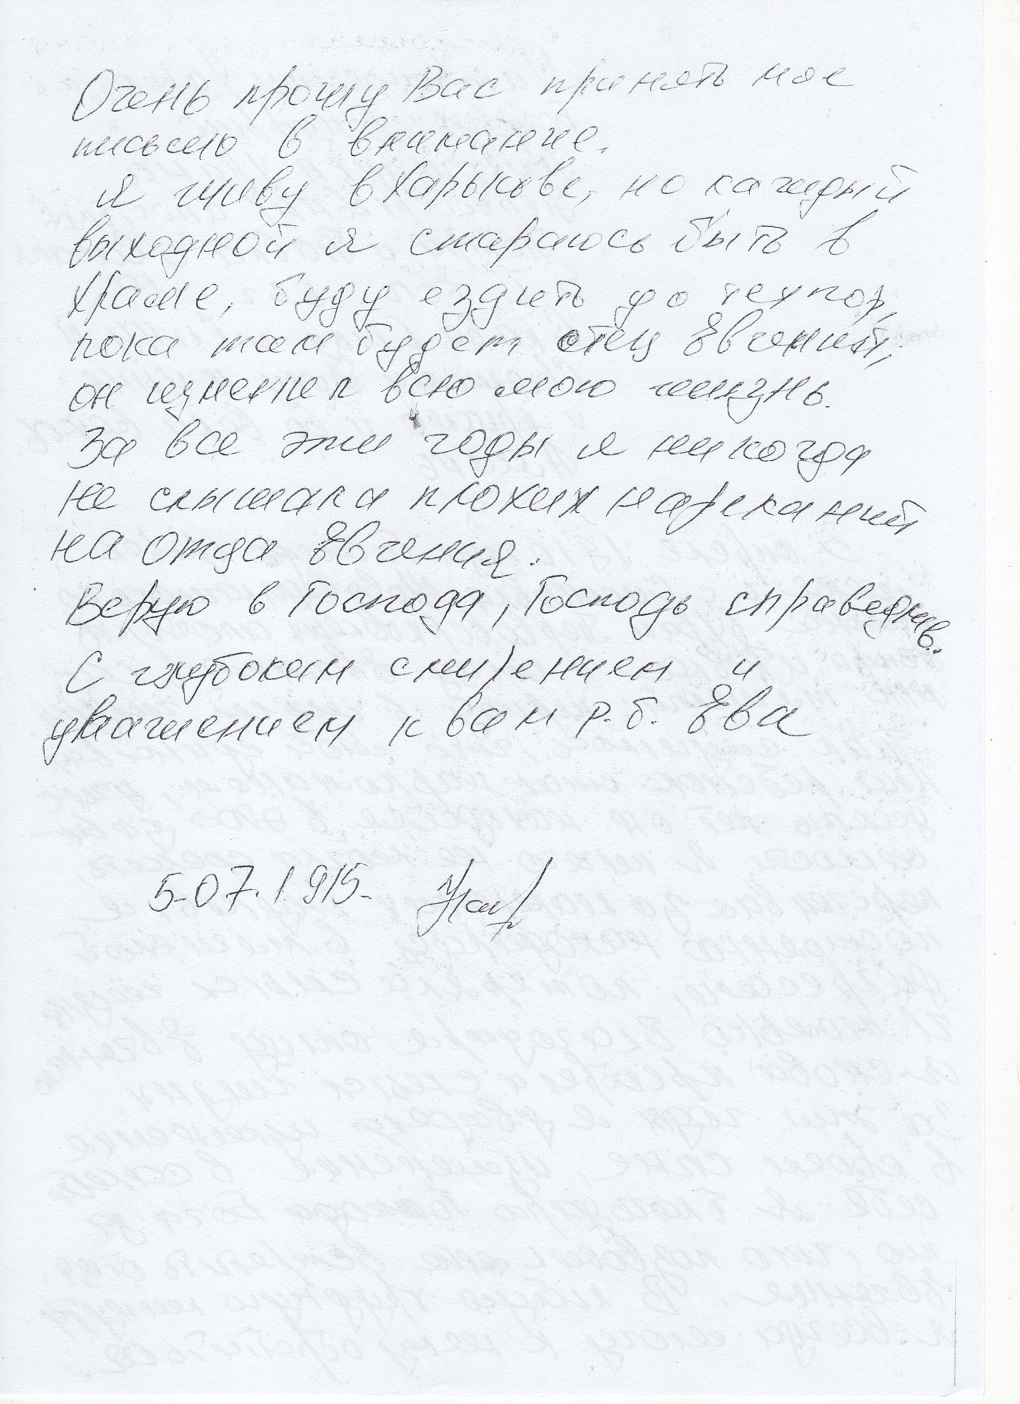 Очень прошу Вас принять мое
письмо в внимание.
Я живу в Харькове, но каждый
выходной я стараюсь быть в
Храме, буду ездить до тех пор,
пока там будет отец Евгений,
он изменил всю мою жизнь.
За все эти годы я никогда
не слышала плохих нареканий
на Отца Евгения.
Верую в Господа, Господь справедлив.
С глубоким смирением и
уважением к вам р.б. Ева
5.07.1915.